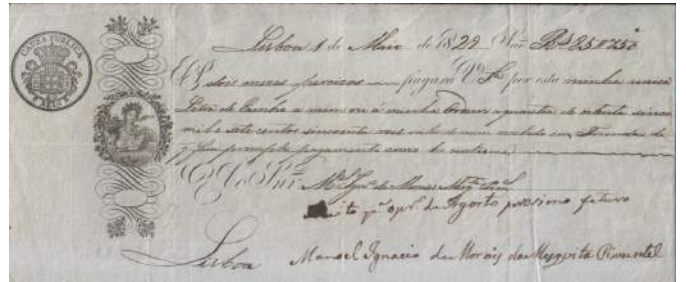 CAUSA PUBLICA
Lisboa 1 de Maio de 1829 São Rs 85$750
A dois mezes precizos pagará V. S. por esta minha unica
Letra de Cambio a mim ou á minha Ordem a quantia de oitenta e cinco
mil e sete centos sincoenta reis valor de mim recebido em Fazendas de
q fará prompto pagamento como he custume
Ao Snr. Mel Igncio de Moraes
Aceito pa o pr. de Agosto proximo futuro
Lisboa Manoel Ignacio de Morais de Mesqita Pimentel